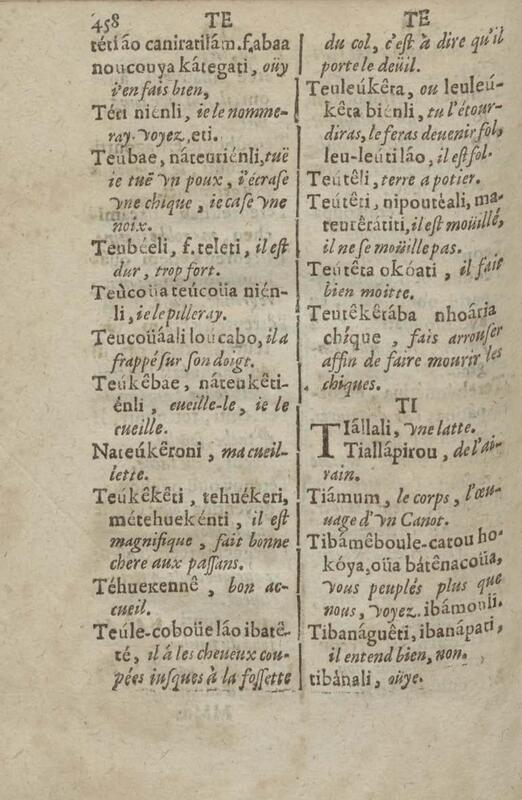 458 TE TE
tétiáo caniratilám. f. abaa
noucouya kátegati, oüy
i'en fais bien,
Téti niénli, ie le nomme-
ray. voyez, eti.
Teúbae, náteuriénli, tuë
ie tuë vn poux, i'écrase
vne chique, ie case vne
noix.
Teubéeli, f. teleti, il est
dur, trop fort.
Teùcoüa teúcoüa nién-
li, ie le pilleray.
Teucoüáali loucabo, il a
frappé sur son doigt.
Teúkêbae, náteukêti-
énli, cueille-le, ie le
cueille.
Nateúkêroni, ma cueil-
lette.
Teúkêkêti, tehuékeri,
métehuekénti, il est
magnifique, fait bonne
chere aux passans.
Téhuekennê, bon ac-
cueil.
Teúle-coboüe láo ibatê-
té, il á les cheueux cou-
pées iusques à la fossette
du col, c'est à dire qu'il
porte le deüil.
Teuleúkêta, ou leuleú-
kêta biénli, tu l'étour-
diras, le feras deuenir fol,
leu-leúti láo, il est fol.
Teutêli, terre a potier.
Teutêti, nipoutéali, ma-
teutêrátiti, il est moüillé,
il ne se moüille pas.
Teutêta okóati, il fait
bien moitte.
Teutêkêtába nhoária
chíque, fais arrouser
affin de faire mourir les
chiques.
TI
TIállali, vne latte.
Tiallápirou, de l'ai-
rain.
Tiámum, le corps, l'œu-
uage d'vn Canot.
Tibámêboule-catou ho-
kóya, oüa bátênacoüa,
vous peuplés plus que
nous, voyez. ibámouli.
Tibanáguêti, ibanápati,
il entend bien, non.
tibánali, oüye.